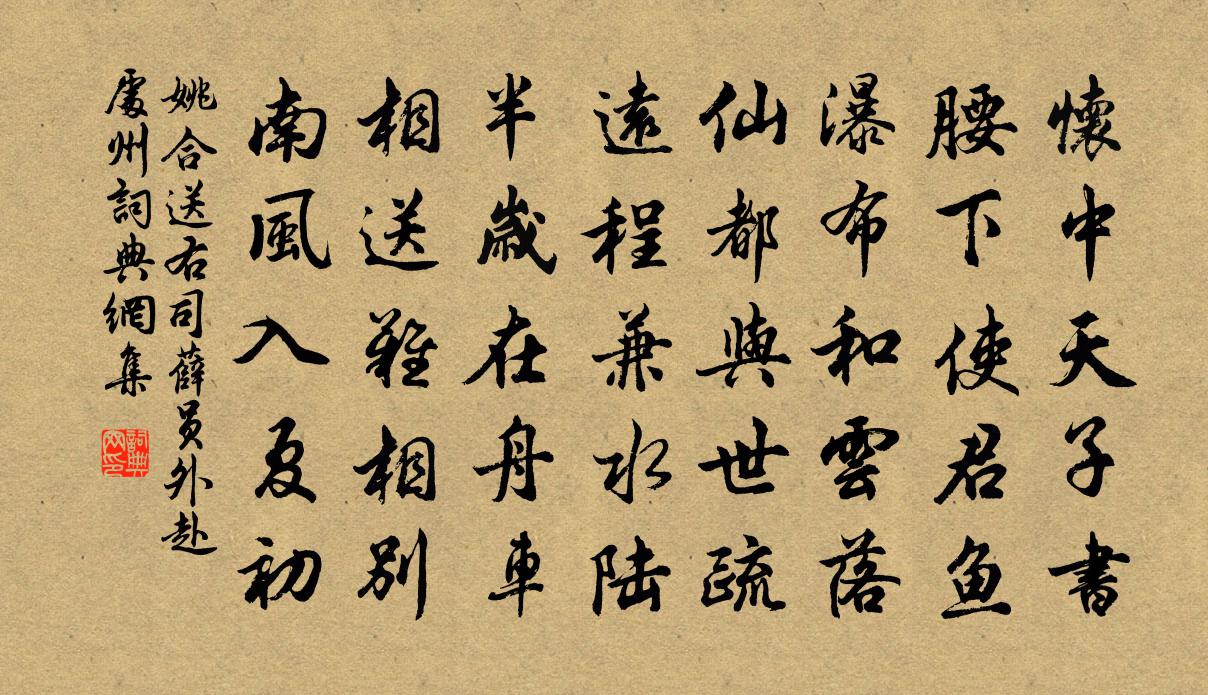 懷中天子書
腰下使君魚
瀑布和雲落
仙都與世疏
遠程兼水陸
半歲在舟車
相送難相別
南風入夏初
姚合送右司薛員外赴
處州詞典網集
詞典網印